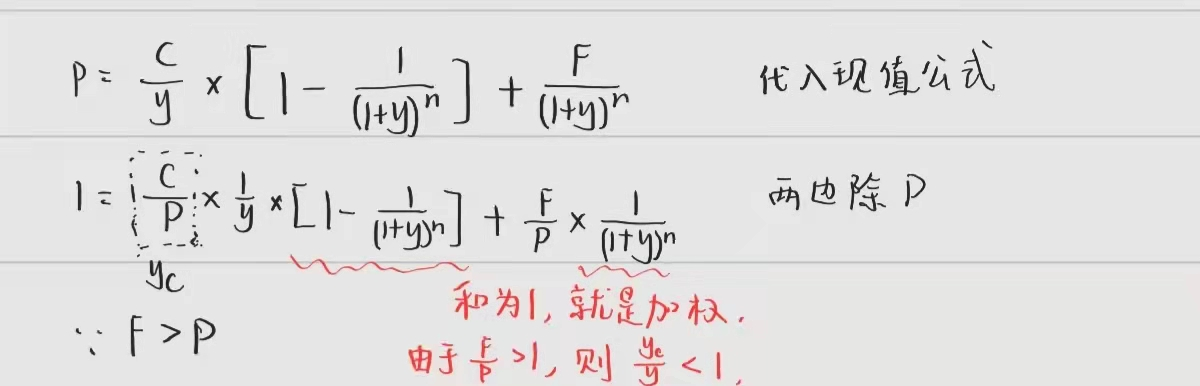 P = C/y × [1 - 1/(1+y)^n] + F/(1+y)^n 代入现值公式
1 = C/P × 1/y × [1 - 1/(1+y)^n] + F/P × 1/(1+y)^n 两边除P
yc
和为1, 就是加权.
∵ F > P
由于 F/P >1, 则 yc/y < 1.